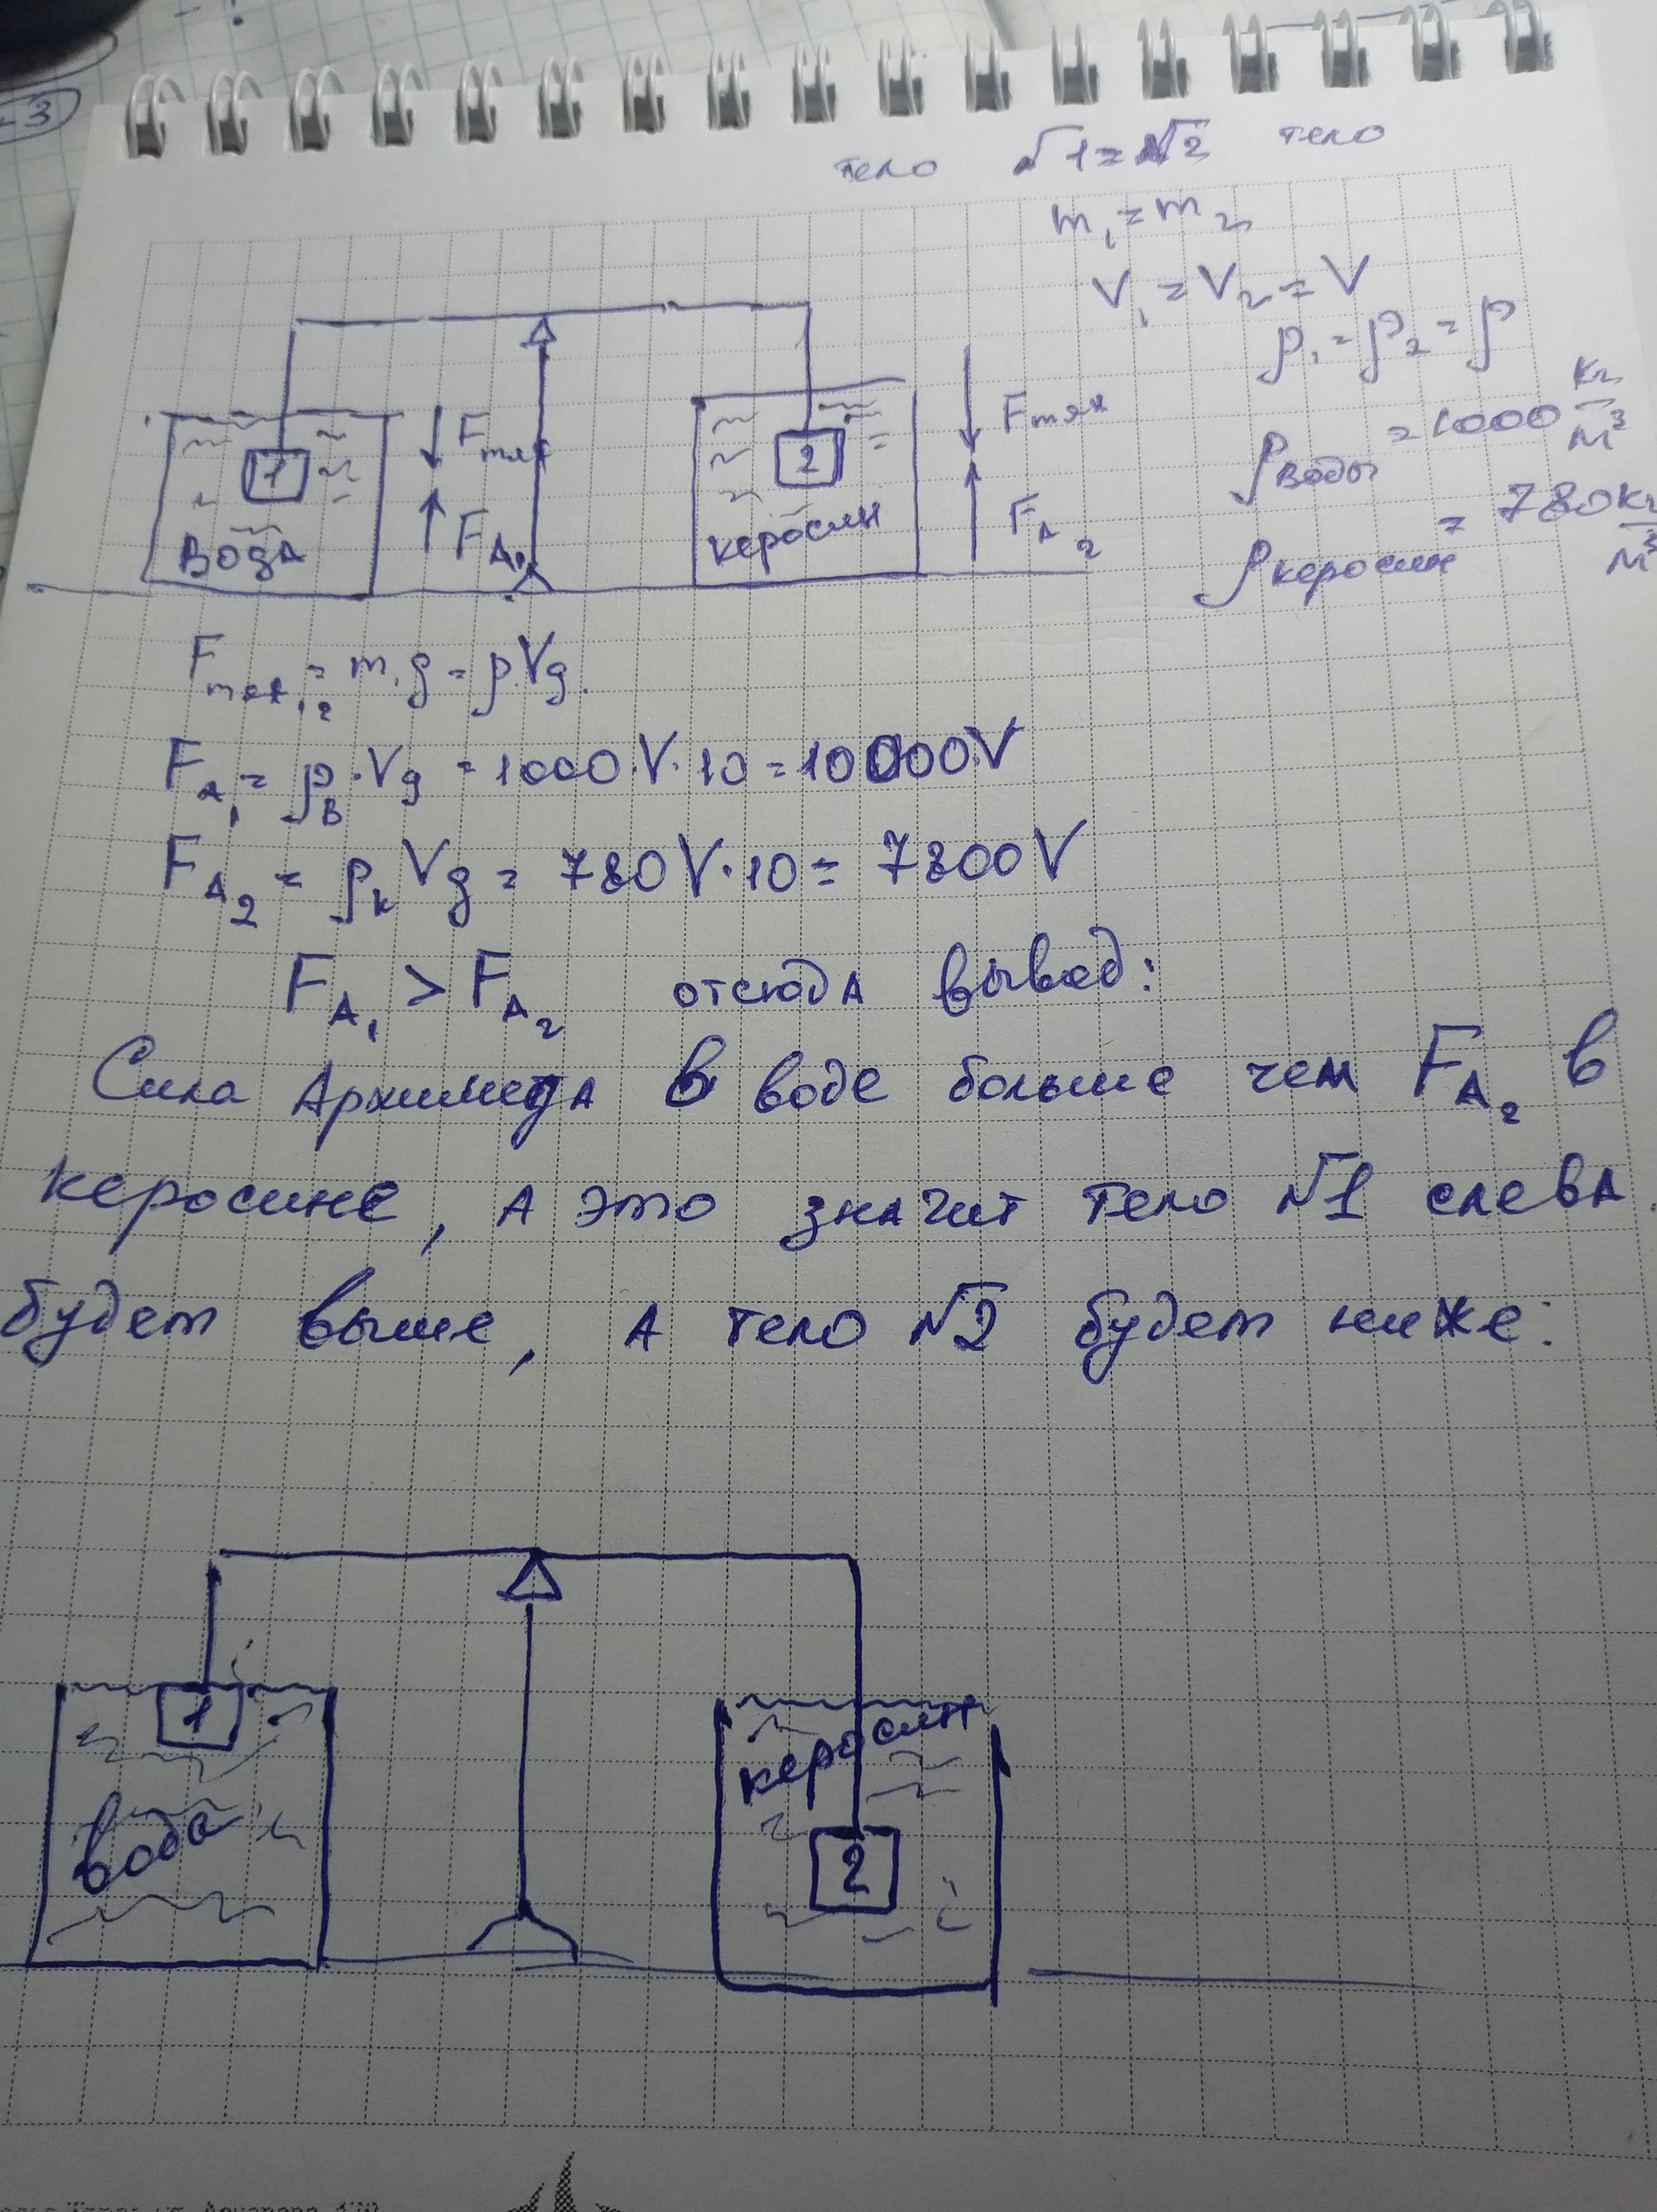 -3
тело №1=№2 тело
m₁=m₂
V₁=V₂=V
ρ₁=ρ₂=ρ
ρводы=1000 кг/м³
ρкеросин=780 кг/м³
1
Fтяж
FA₁
вода
2
Fтяж
FA₂
керосин
Fтяж₁,₂=m₁g=ρVg.
FA₁=ρв·Vg=1000·V·10=10000V
FA₂=ρкVg=780V·10=7800V
FA₁>FA₂ отсюда вывод:
Сила Архимеда в воде больше чем FA₂ в
керосине, а это значит тело №1 слева
будет выше, а тело №2 будет ниже:
1
вода
керосин
2